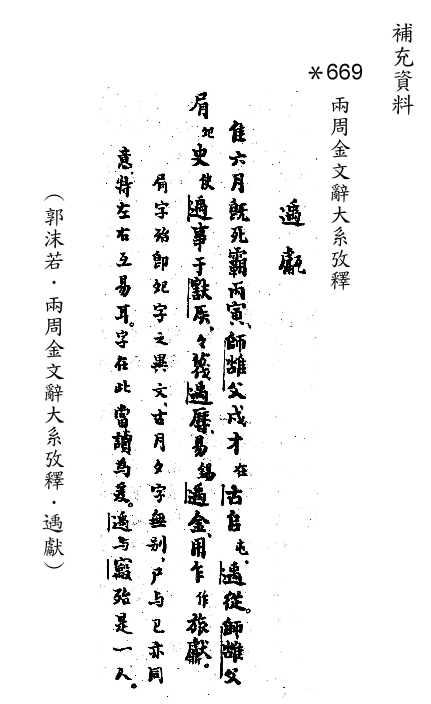 補充資料
＊669
兩周金文辭大系攷釋
遹甗
隹六月旣死霸丙寅、師雝父戍才在古𠂤屯、遹從。師雝父
㞋事史使遹事于㝬侯、〻蔑遹曆、易錫遹金、用乍作旅甗。
字殆卽字之異文、古月夕字無別、尸与巳亦同
意、特左右互易耳。字在此當讀為爰。遹与㝨殆是一人。
（郭沫若．兩周金文辭大系攷釋．遹獻）